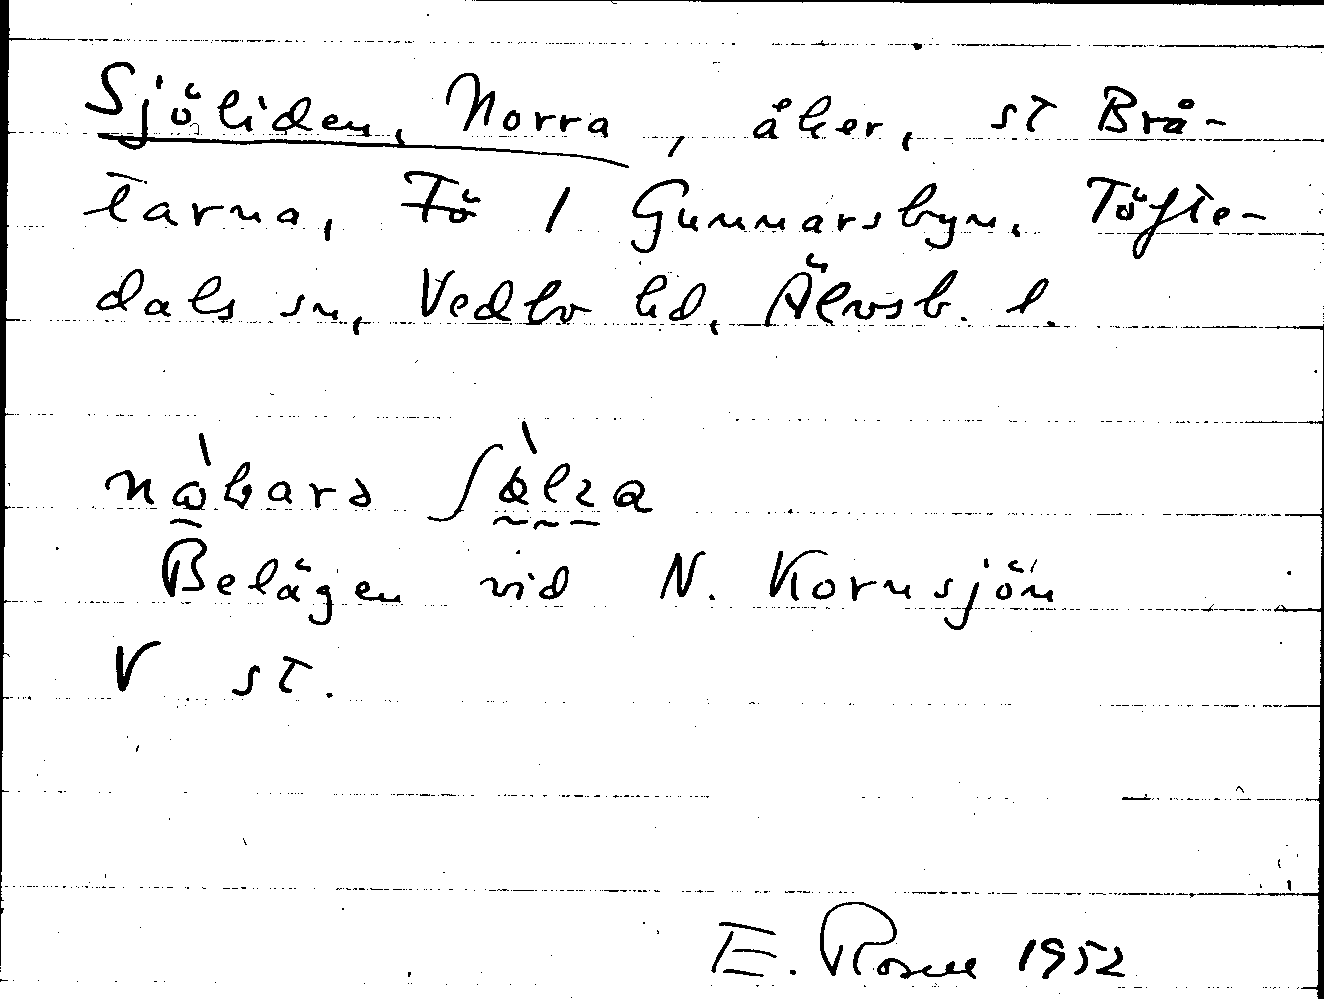 Sjöliden, Norra, åker, st Brå-
tarna, Tö 1 Gunnarsbyn. Töfte-
dals sn, Vedbo hd, Älvsb. l.
Belägen vid N. Kornsjön
V st.
E. Rosell 1952